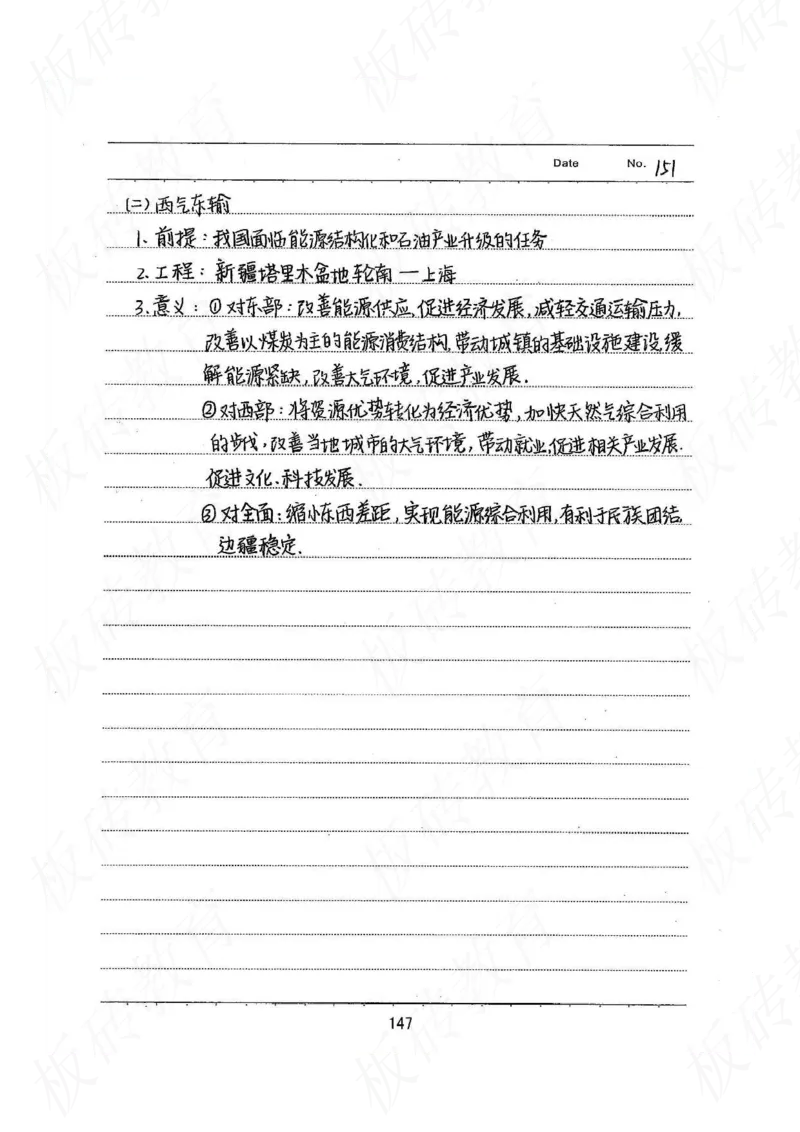 Date No. 151
(二) 西气东输
1. 前提：我国面临能源结构化和石油产业升级的任务
2. 工程：新疆塔里木盆地轮南—上海
3. 意义：①对东部：改善能源供应,促进经济发展,减轻交通运输压力,
改善以煤炭为主的能源消费结构,带动城镇的基础设施建设,缓
解能源紧缺,改善大气环境,促进产业发展.
②对西部：将资源优势转化为经济优势,加快天然气综合利用
的步伐,改善当地城市的大气环境,带动就业,促进相关产业发展.
促进文化、科技发展.
③对全面：缩小东西差距,实现能源综合利用,有利于民族团结
边疆稳定.
147
板砖教育